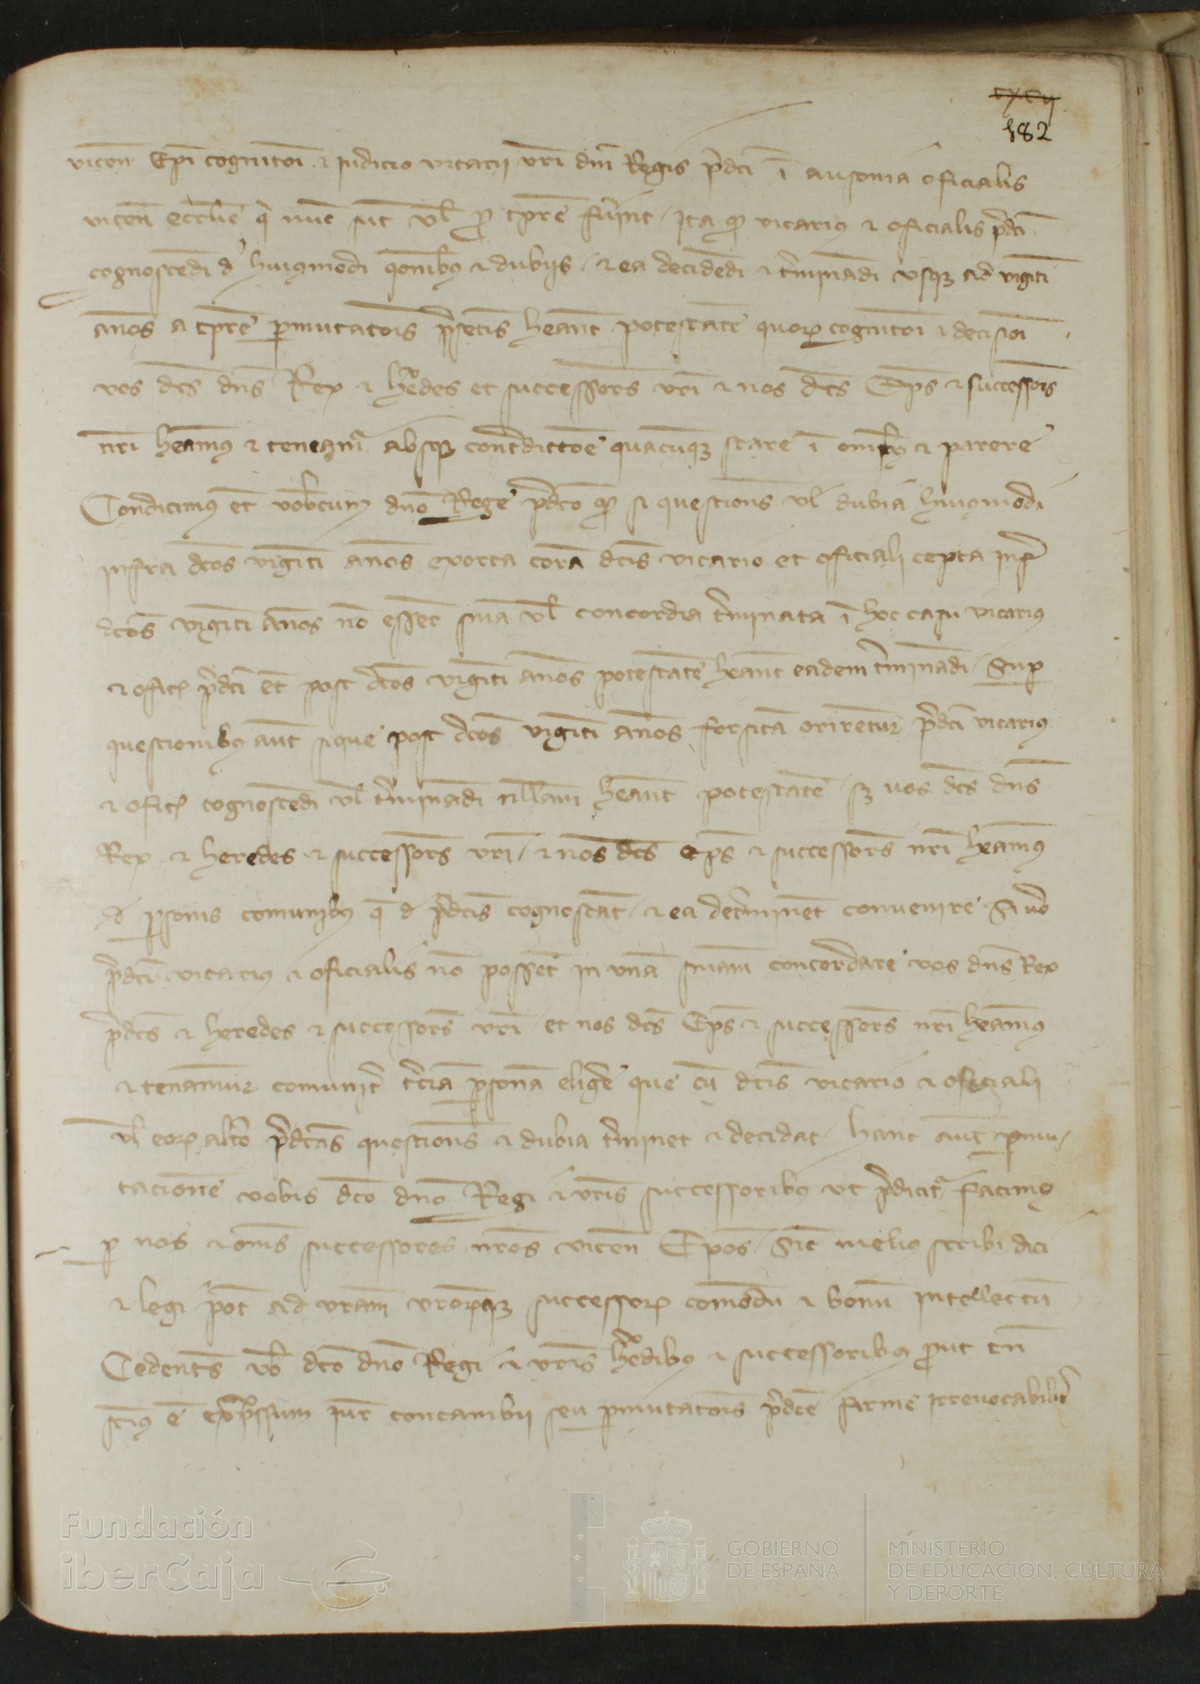 cxcij
182
vicen Epi cognitoi & iudicio vicarii vri dni Regis pdci i ausonia oficialis
vicen ecclie q nuc sut vl p tpre fuint / Ita q vicarius & oficialis pdci
cognoscedi d huiusmodi qonibus & dubiis / & ea decidedi & tminadi usq ad viginti
annos a tpre pmutatois psetis heant potestate quor cognitoi & decisioi
vos dcs dns Rex & hedes et successors vri & nos dcs Eps & successors
nri heamus & teneamr absq contdictoe quacuq stare i omibus & parere
Condicimus et vobcum dno Rege pdco q si questions vl dubia huiusmodi
infra dcos viginti annos exorta cora dcis vicario et oficiali cepta infr
dcos viginti annos no essent snia vl concordia tminata i hoc casu vicarius
& ofics pdci et post dcos viginti annos potestate heant eadem tminadi / Sup
questionibus aut sique post dcos viginti annos forsita oriretur pdci vicarius
& ofics cognoscedi vl tminadi nllam heant potestate / sz vos dcs dns
Rex & heredes & successors vri / & nos dcs eps & successors nri heamus
d psonis comunibus q d pdcis cognoscat / & ea detminet convenire Si vo
pdci vicarius & oficialis no posset in una sniam concordare vos dns Rex
pdcs & heredes & successors vri et nos dcs Eps & successors nri heamus
& teneamur comunit tcia psona eligere que cu dcis vicario & oficiali
vl eor alto pdcas questions & dubia tminet & decidat / hanc aut pmu/
tacione vobis dco dno Regi & vris successoribus ut pdicitr facimus
p nos & oms successores nros vicen Epos / Sic melius scribi dici
& legi pot ad vram vrorq successor comodu & bonu intellectu
Cedents vob dco dno Regi & vris hedibus & successoribus put tn
scius e expssum iure concambii seu pmutatois pdce firme irrevocabilit
Fundación
iberCaja
GOBIERNO
DE ESPAÑA
MINISTERIO
DE EDUCACIÓN, CULTURA
Y DEPORTE